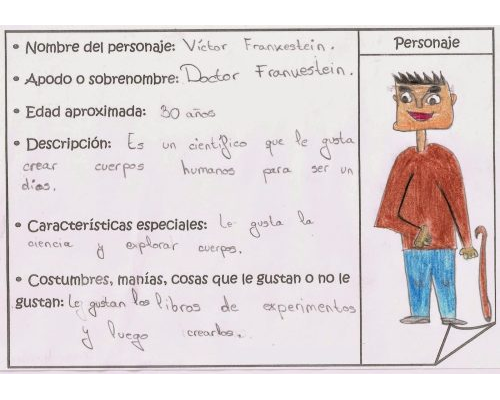 • Nombre del personaje: Víctor Frankestein.
Personaje
• Apodo o sobrenombre: Doctor Frankestein.
• Edad aproximada: 30 años
• Descripción: Es un científico que le gusta
crear cuerpos humanos para ser un
dios.
• Características especiales: Le gusta la
ciencia y explorar cuerpos.
• Costumbres, manías, cosas que le gustan o no le
gustan: Le gustan los libros de experimentos
y luego crearlos.